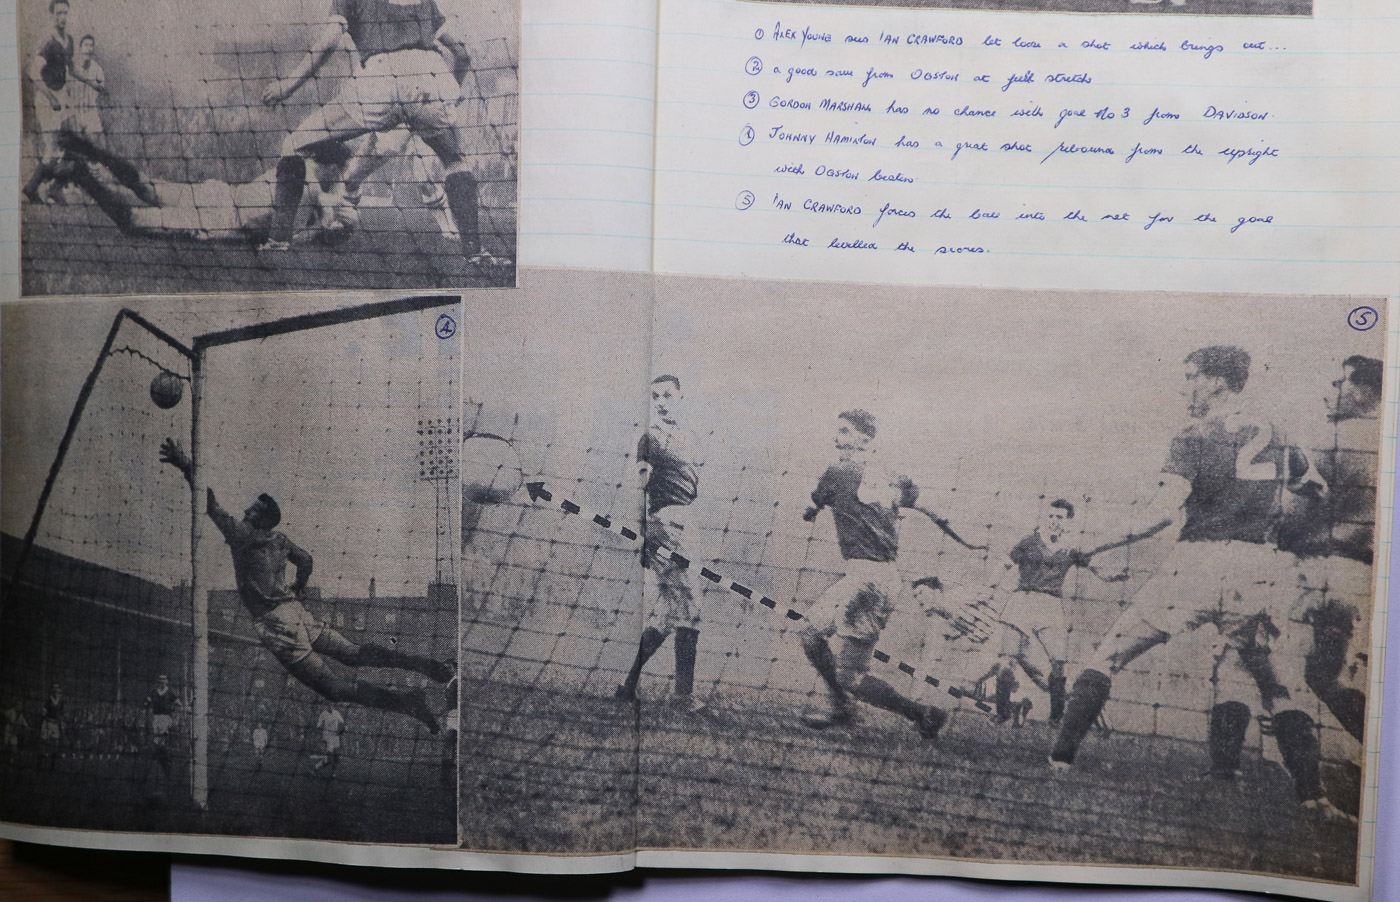 ① ALEX YOUNG sees IAN CRAWFORD let loose a shot which brings out...
② a good save from OGSTON at full stretch
③ GORDON MARSHALL has no chance with goal No 3 from DAVIDSON.
④ JOHNNY HAMILTON has a great shot rebound from the upright
with OGSTON beaten.
⑤ IAN CRAWFORD forces the ball into the net for the goal
that levelled the scores.
④
⑤
2